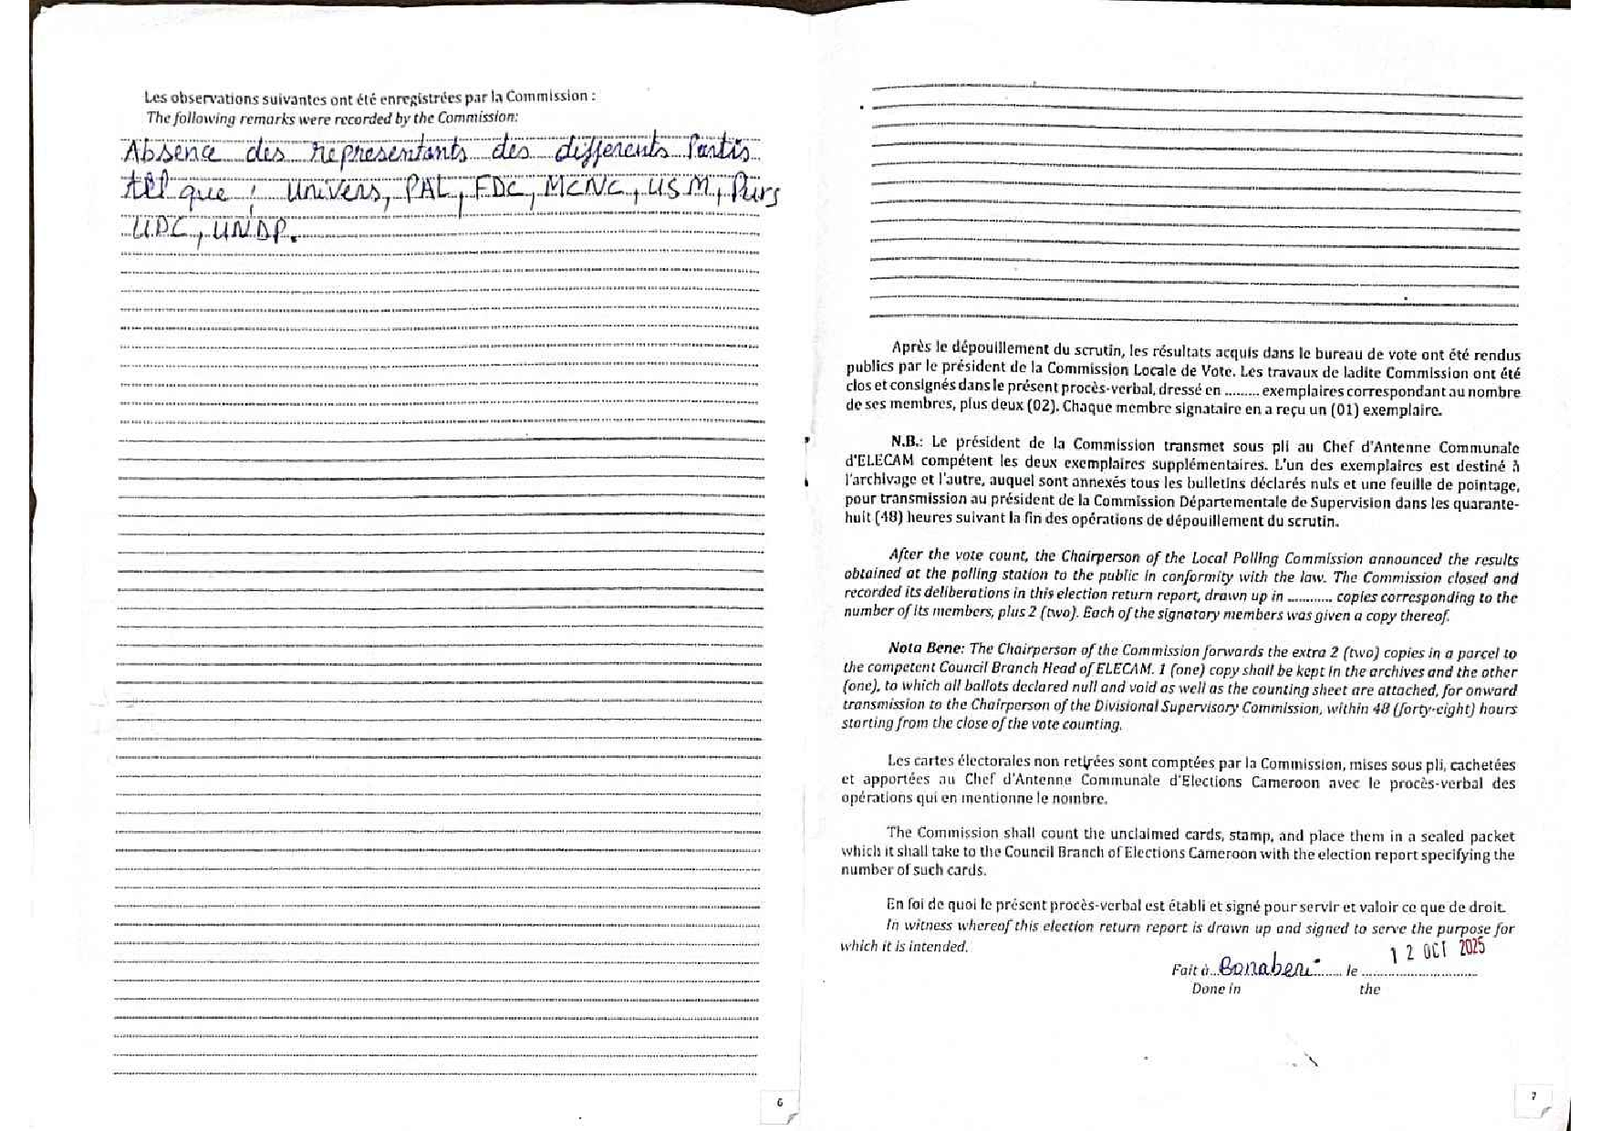 Les observations suivantes ont été enregistrées par la Commission :
The following remarks were recorded by the Commission:
Absence des representants des differents Partis
tel que : Univers, PAL, FDC, MCNC, USM, Purs
UDC, UNDP.
6
Après le dépouillement du scrutin, les résultats acquis dans le bureau de vote ont été rendus
publics par le président de la Commission Locale de Vote. Les travaux de ladite Commission ont été
clos et consignés dans le présent procès-verbal, dressé en ......... exemplaires correspondant au nombre
de ses membres, plus deux (02). Chaque membre signataire en a reçu un (01) exemplaire.
N.B.: Le président de la Commission transmet sous pli au Chef d'Antenne Communale
d'ELECAM compétent les deux exemplaires supplémentaires. L'un des exemplaires est destiné à
l'archivage et l'autre, auquel sont annexés tous les bulletins déclarés nuls et une feuille de pointage,
pour transmission au président de la Commission Départementale de Supervision dans les quarante-
huit (48) heures suivant la fin des opérations de dépouillement du scrutin.
After the vote count, the Chairperson of the Local Polling Commission announced the results
obtained at the polling station to the public in conformity with the law. The Commission closed and
recorded its deliberations in this election return report, drawn up in ........... copies corresponding to the
number of its members, plus 2 (two). Each of the signatory members was given a copy thereof.
Nota Bene: The Chairperson of the Commission forwards the extra 2 (two) copies in a parcel to
the competent Council Branch Head of ELECAM. 1 (one) copy shall be kept in the archives and the other
(one), to which all ballots declared null and void as well as the counting sheet are attached, for onward
transmission to the Chairperson of the Divisional Supervisory Commission, within 48 (forty-eight) hours
starting from the close of the vote counting.
Les cartes électorales non retirées sont comptées par la Commission, mises sous pli, cachetées
et apportées au Chef d'Antenne Communale d'Elections Cameroon avec le procès-verbal des
opérations qui en mentionne le nombre.
The Commission shall count the unclaimed cards, stamp, and place them in a sealed packet
which it shall take to the Council Branch of Elections Cameroon with the election report specifying the
number of such cards.
En foi de quoi le présent procès-verbal est établi et signé pour servir et valoir ce que de droit.
In witness whereof this election return report is drawn up and signed to serve the purpose for
which it is intended.
Fait à Bonaberi le 12 OCT 2025
Done in the
7